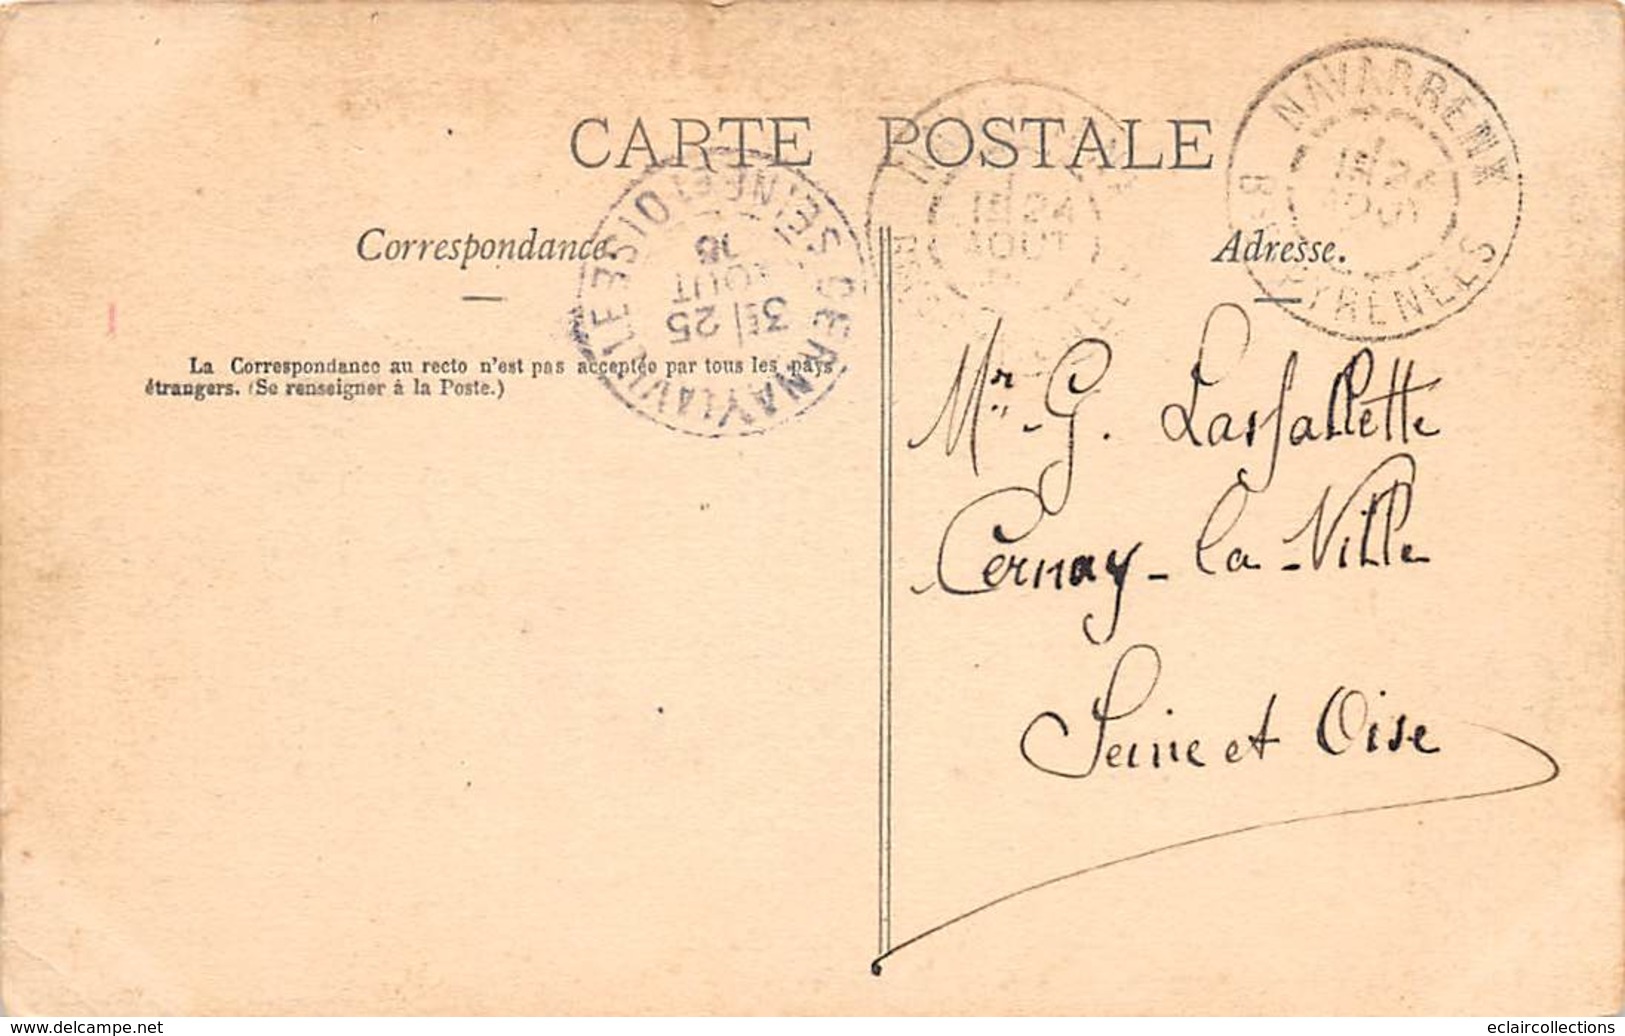 CARTE POSTALE
NAVARRENX
Bses PYRENEES
1E 24
AOUT
1E 24
AOUT
CERNAY LA VILLE
SEINE ET OISE
3E 25
AOUT
Correspondance
Adresse.
La Correspondance au recto n'est pas acceptée par tous les pays
étrangers. (Se renseigner à la Poste.)
Mr. G. Lassallette
Cernay-la-Ville
Seine et Oise
www.delcampe.net
eclaircollections